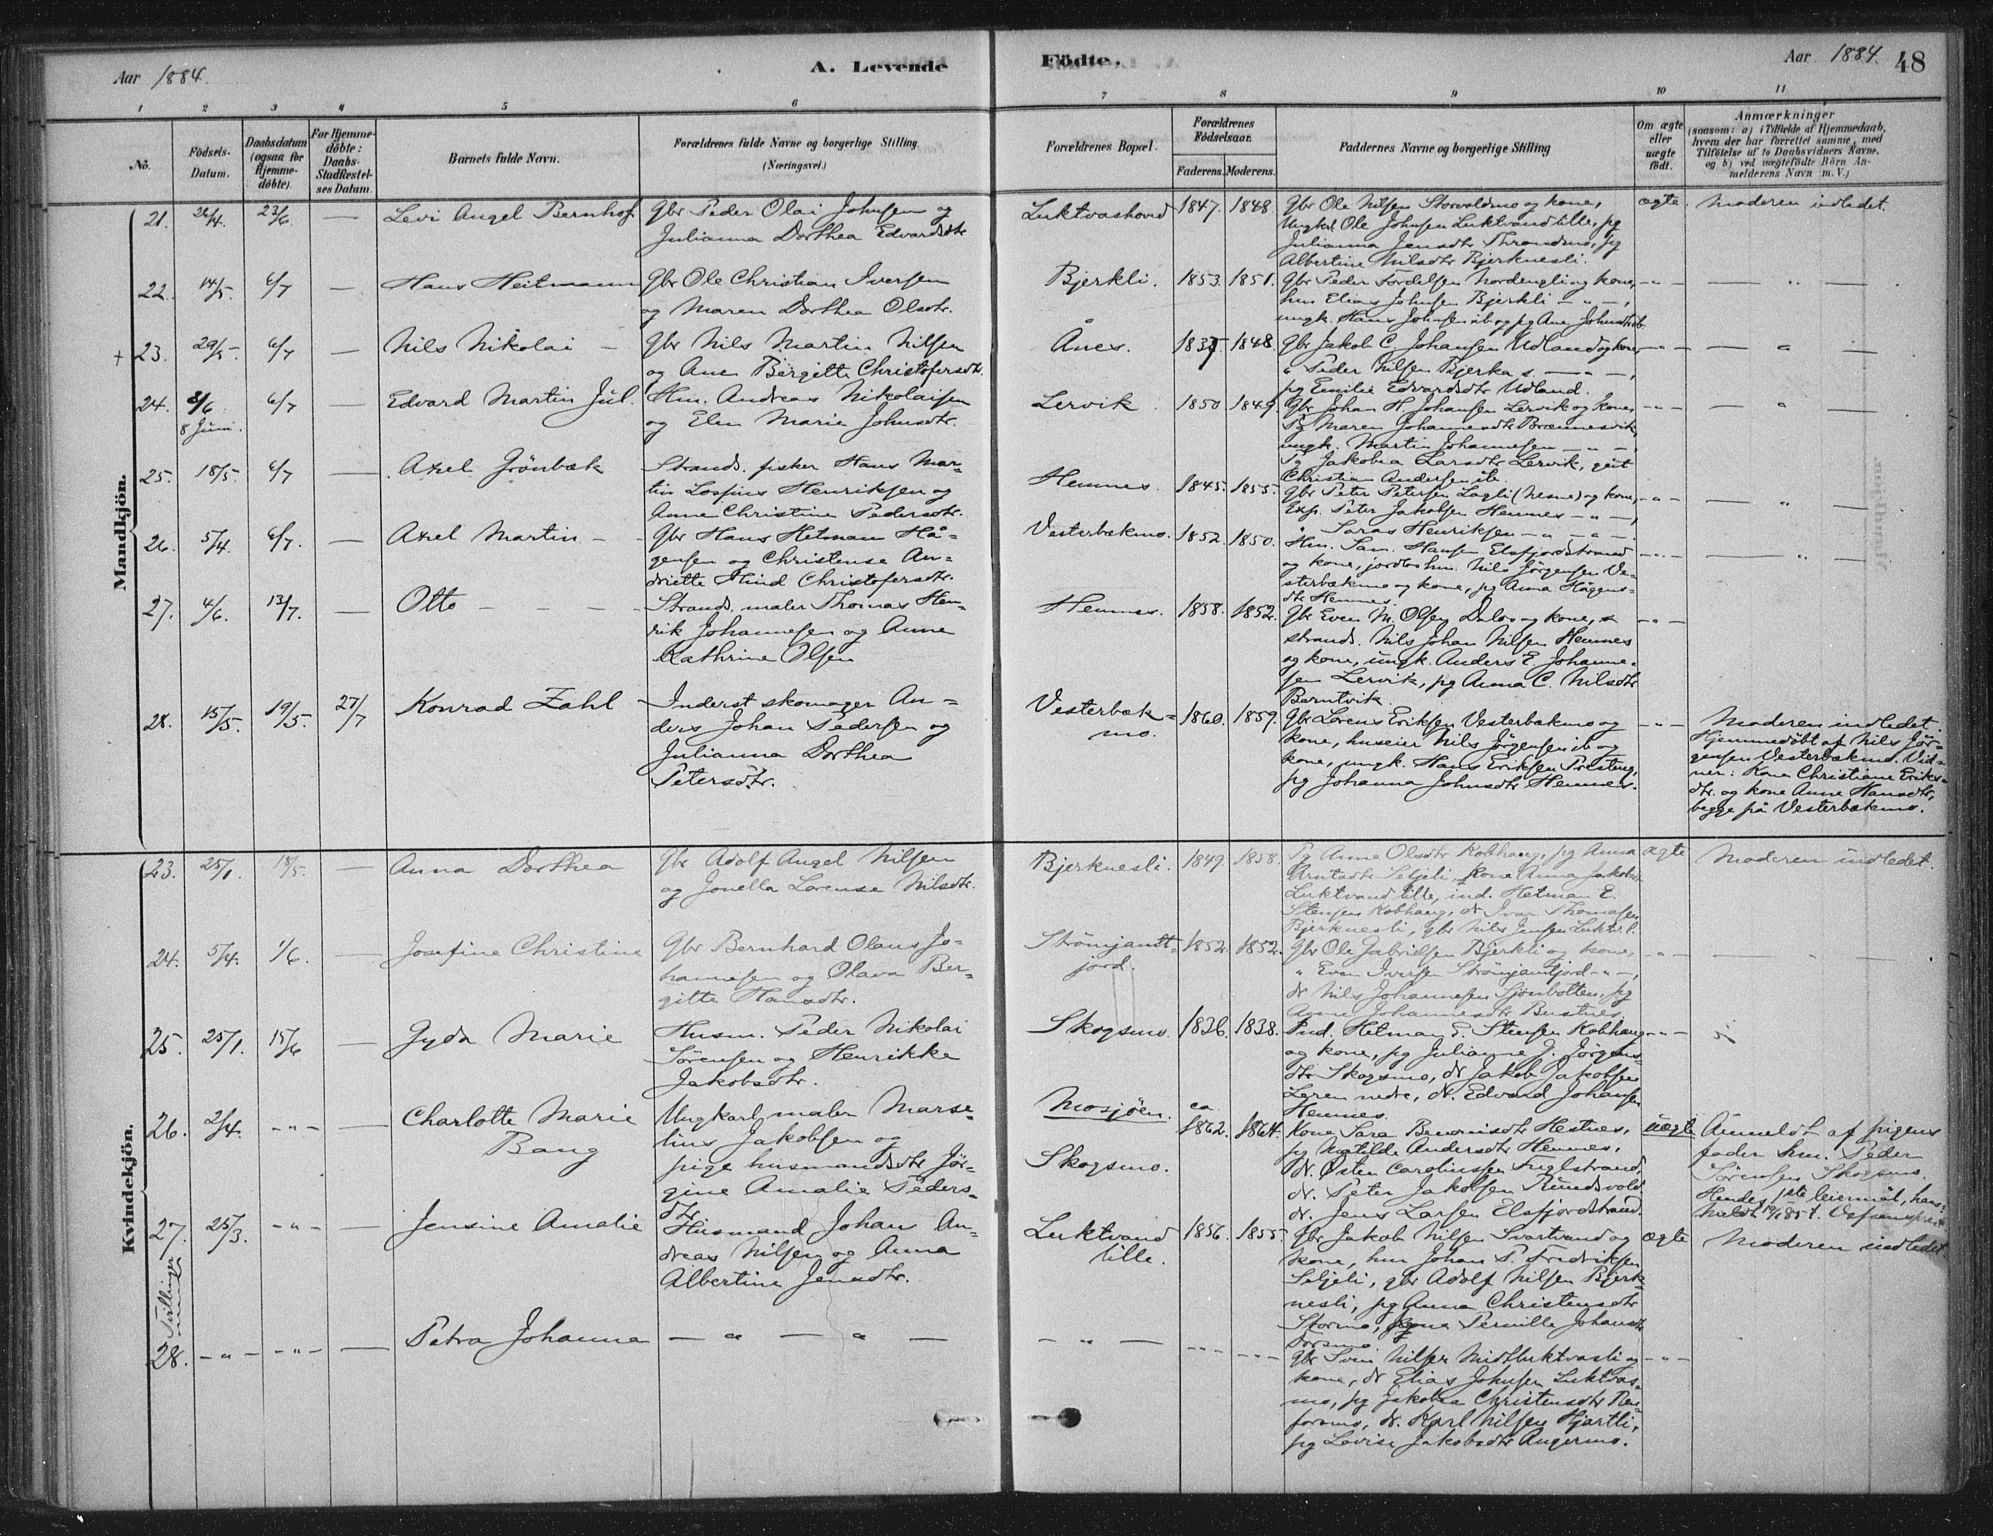 Aar 1884.
A. Levende
Födte.
Aar 1884.
48
1 2 3 4 5 6 7 8 9 10 11
No.
Födsels-Datum.
Daabsdatum (ogsaa for Hjemme-döbte).
For Hjemme-döbte: Daabs-Stadfæstel-ses Datum.
Barnets fulde Navn.
Forældrenes fulde Navne og borgerlige Stilling (Næringsvei.)
Forældrenes Bopæl.
Forældrenes Födselsaar.
Faderens. Moderens.
Faddernes Navne og borgerlige Stilling
Om ægte eller uægte födt.
Anmærkninger
(saasom: a) i Tilfælde af Hjemmedaab,
hvem der har forrettet samme, med
Tilföielse af to Daabsvidners Navne.
og b) ved uægtefödte Börn An-
melderens Navn m. V.)
Mandkjön.
21. 26/4. 23/6 — Levi Angel Bernhof.
Gbr Peder Olai Johnsen og
Julianna Dorthea Edvardsdtr
Luktvashoved 1847. 1848.
Gbr Ole Nilsen Storvoldmo og kone,
Ungkarl Ole Johnsen Luktvand lille, pg
Julianna Jensdtr Thrandmo, pg
Albertine Nilsdtr Bjerknesli.
ægte. Moderen indledet.
22. 14/5. 6/7 — Hans Heitmann
Gbr Ole Christian Iversen
og Maren Dorthea Olsdtr.
Bjerkli. 1853. 1851.
Gbr Peder Fordelsen Nordengli og kone,
hm Elias Johnsen Bjerkli — " —,
ungk. Hans Johnsen ib og pg Ane Johnsdtr ib.
— " — — " —
+ 23. 29/5. 6/7 — Nils Nikolai —
Gbr Nils Martin Nilsen
og Ane Bergitte Christofersdtr.
Ånes. 1837. 1848.
Gbr Jakob C. Johansen Udland og kone,
" Peder Nilsen Bjerka s. — " —,
pg Emilie Edvardsdtr Udland.
— " — — " —
24. 8/6. 6/7 — Edvard Martin Jul.
8 Juni.
Hm. Andreas Nikolaisen
og Elen Marie Johnsdtr.
Lervik. 1850 1849.
Gbr Johan H. Johansen Lervik og kone,
Pg Maren Johannesdtr Brennesvik,
ungk. Martin Johannesen — " —,
Pg Jakobea Larsdtr Lervik, gift
Christian Andersen ib.
— " — — " —
25. 18/5. 6/7 — Axel Grönbæk
Strands. fisker Hans Mar-
tin Losius Henriksen og
Anne Christine Pedersdtr.
Hemnes. 1845. 1855.
Gbr Peter Petersen Lagli (Nesne) og kone,
Exp. Peter Jakobsen Hemnes — " —,
" Saras Henriksen — " —
— " — — " —
26. 5/4. 6/7. — Axel Martin — —
Gbr Hans Hetman Hå-
gensen og Christense An-
driette Hind Christofersdtr.
Vesterbækmo. 1852. 1850.
Hm. Sam. Hansen Elsfjordstrand
og kone, jordløs hm. Nils Jörgensen Ve-
sterbækmo og kone, pg Anna Hågens-
dtr Hemnes.
— " — — " —
27. 4/6. 13/7. — Otto — — —
Strands. maler Thomas Hen-
rik Johannesen og Anne
Kathrine Olsen
Hemnes. 1858. 1852.
Gbr Even M. Olsen Dalos og kone,
strands. Nils Johan Nilsen Hemnes
og kone, ungk. Anders E. Johanne-
sen Lervik, pg Anna C. Nilsdtr
Barntvik.
— " —
28. 15/5. 19/5. 27/7 Konrad Zahl
Inderst skomager An-
ders Johan Pedersen og
Julianna Dorthea
Petersdtr.
Vesterbæk-
mo. 1860. 1859.
Gbr Lorens Eriksen Vesterbækmo og
kone, huseier Nils Jörgensen ib og
kone, ungk. Hans Eriksen Presteng,
pg Johanna Johnsdtr Hemnes.
— " —
Moderen indledet.
Hjemmedöbt af Nils Jör-
gensen Vesterbækmo. Vid-
ner: Kone Christiane Eriks-
dtr. og kone Anne Hansdtr,
begge på Vesterbækmo.
Kvindekjön.
23. 25/1. 18/5. — Anna Dorthea
Gbr Adolf Angel Nilsen
og Jonella Lorense Nilsdtr.
Bjerknesli. 1849. 1858.
Pg Anne Olsdtr Kobhaug, pg Anna
Arntsdtr Seljeli, kone Anna Jakobsdtr
Luktvand lille, ind. Hetman E.
Stensen Kobhaug, dr. Ivar Thomasen
Bjerknesli, gbr Nils Jensen Luktv. l.
ægte Moderen indledet.
24. 5/4. 1/6. — Josefine Christine
Gbr Bernhard Olaus Jo-
hannesen og Olava Ber-
gitte Hansdtr.
Strömjamt-
jord. 1852. 1852.
Gbr Ole Gabrielsen Bjerkli og kone,
" Even Iversen Strömjamtjord — " —,
dr Nils Johannesen Sjonbotten, pg
Anne Johannesdtr Bustnes.
— " — — " —
25. 25/1. 15/6 — Gyda Marie
Husm. Peder Nikolai
Sörensen og Henrikke
Jakobsdtr.
Skogsmo. 1836. 1838.
Ind. Hetman E. Stensen Kobhaug
og kone, pg Julianne J. Jörgens-
dtr Skogsmo, dr Jakob Jakobsen
Leren nedre, dr. Edvard Johansen
Hemnes.
— " —
26. 2/4. — " — — Charlotte Marie
Bang
Ungkarl maler Marse-
lius Jakobsen og
pige husmandsdtr Jör-
gine Amalie Peders-
dtr.
Mosjöen.
Skogsmo.
ca
1862. 1864.
Kone Sara Benonisdtr Hestnes,
pg Matilde Andersdtr Hemnes,
dr. Östen Carolinssen Fuglstrand,
dr. Peter Jakobsen Rundsvold
dr. Jens Larsen Elsfjordstrand.
uægte
Anmeldt af pigens
fader hm. Peder
Sörensen Skogsmo.
Hendes 1ste leiermål, hans
27. 25/3. — " — — Jensine Amalie
Husmand Johan An-
dreas Nilsen og Anna
Albertine Jensdtr.
Luktvand
lille. 1856. 1855.
Gbr Jakob Nilsen Svartvand og
kone, hm Johan P. Fredriksen
Seljeli, gbr Adolf Nilsen Bjerk-
nesli, pg Anna Christensdtr
Stormo, kone Pernille Johansdtr
ægte Moderen indledet.
Tvillinger
28. — " — — " — — Petra Johanna
— " — " —
— " —
Gbr Sven Nilsen Midtluktvasli og
kone, dr Elias Johnsen Luktvas-
mo, pg Jakobea Christensdtr Ren-
forsmo, dr. Karl Nilsen Hjartli,
pg Lovise Jakobsdtr Angermo.
— " —